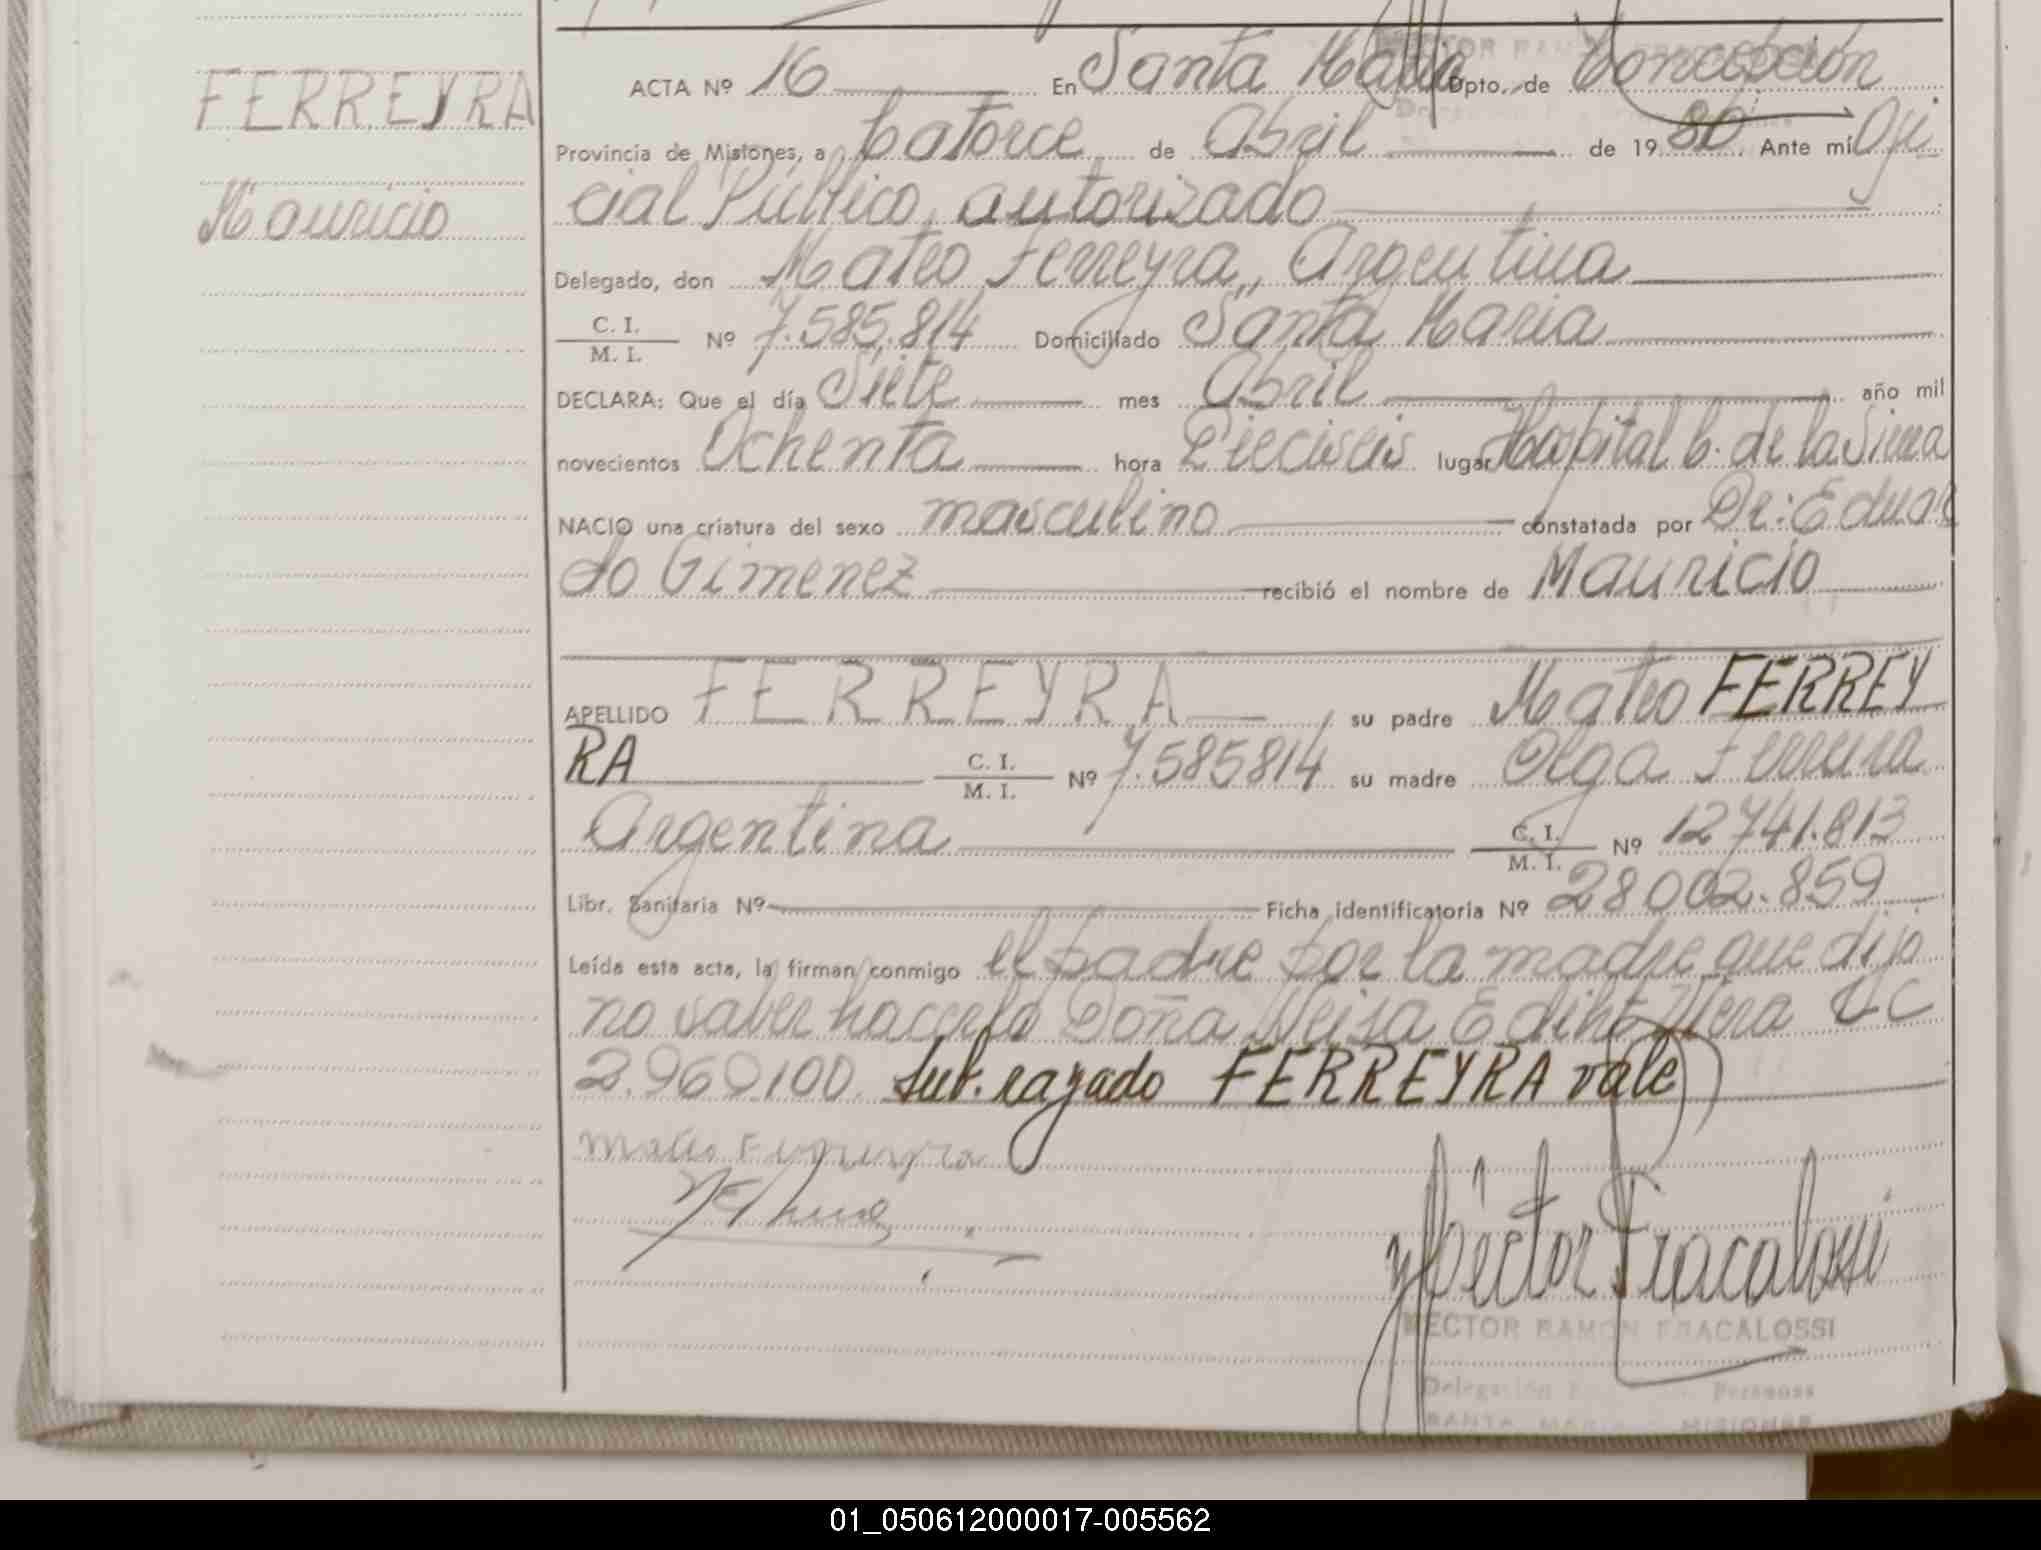 FERREYRA
Mauricio
ACTA Nº 16 En Santa María Dpto. de Concepción
Provincia de Misiones, a Catorce de Abril de 1980 Ante mí Ofi
cial Público, autorizado
Delegado, don Mateo Ferreyra, Argentina
C. I.
M. I. Nº 7.585.814 Domiciliado Santa Maria
DECLARA: Que el día Siete mes Abril año mil
novecientos Ochenta hora Dieciseis lugar Hospital C. de la Sierra
NACIO una criatura del sexo masculino constatada por Dr: Eduar
do Gimenez recibió el nombre de Mauricio
APELLIDO FERREYRA su padre Mateo FERREY
RA C. I. M. I. Nº 7.585814 su madre Olga Ferreira
Argentina C. I. M. I. Nº 12741.813
Libr. Sanitaria Nº Ficha identificatoria Nº 28002.859
Leída esta acta, la firman conmigo el padre por la madre que dijo
no saber hacerlo Doña Neisa Ediht Viera LC
2.969100. Sub. razado FERREYRA vale
Mateo Ferreyra
Héctor Fracalossi
HECTOR RAMON FRACALOSSI
Delegación Personas
SANTA MARIA - MISIONES
01_050612000017-005562